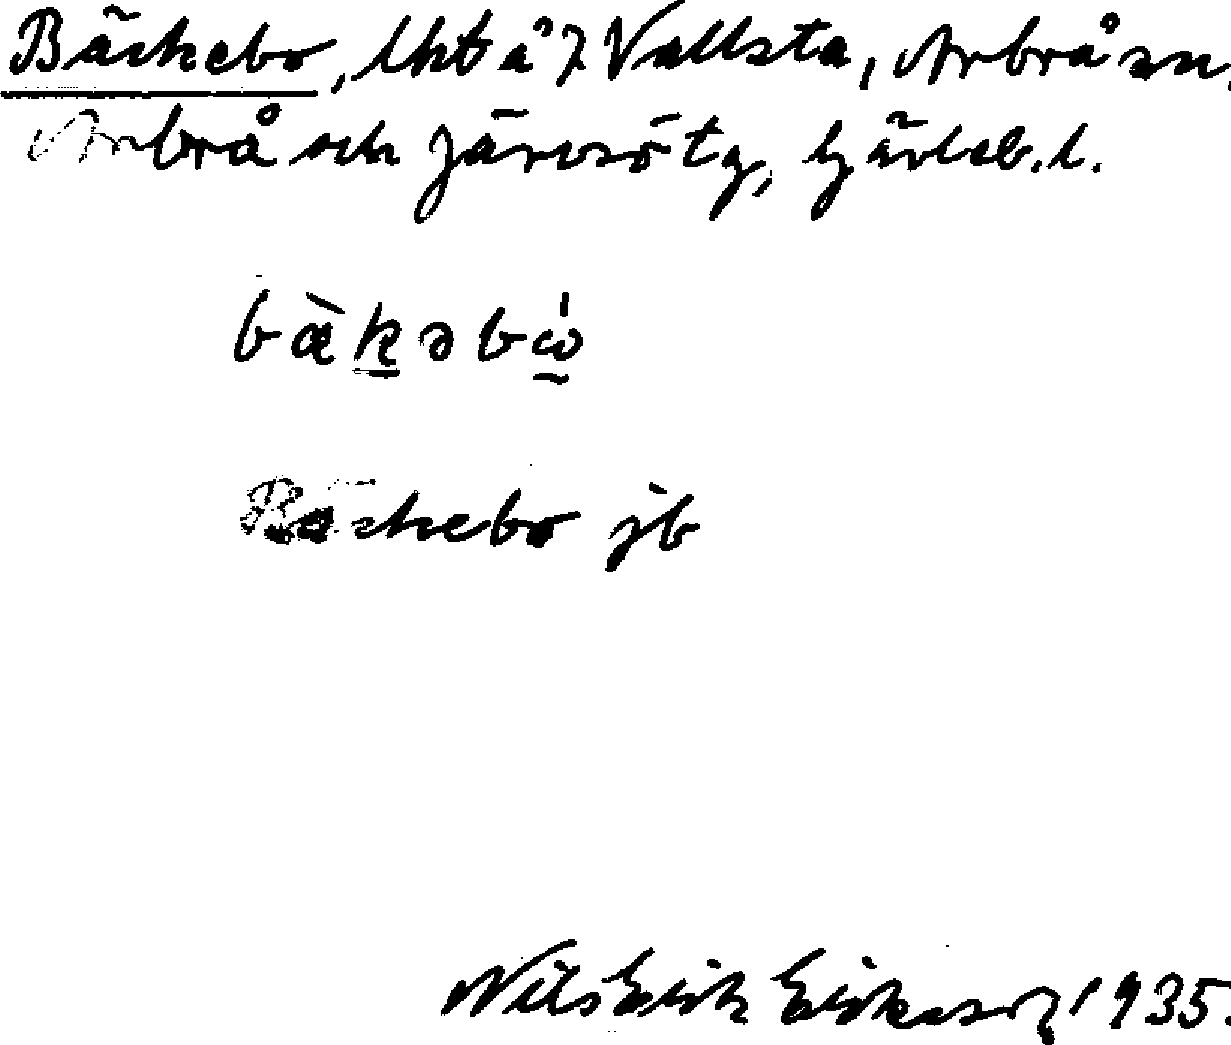 Bäckebo, lht å 7 Vallsta, Arbrå sn,
Arbrå och Järvsö tg, Gävleb. l.
bä̀kəbω̇
Bäckebo jb
Nils Erik Eriksson 1935.